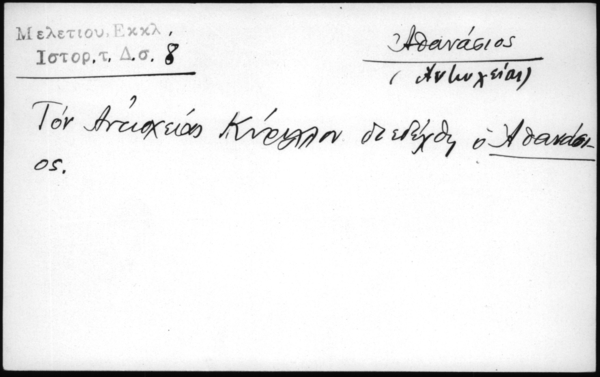 Μελετίου, Εκκλ.
Ιστορ. τ. Δ.σ. 8
Ἀθανάσιος
(Ἀντιοχείας)
Τόν Ἀντιοχείας Κύριλλον διεδέχθη ὁ Ἀθανάσι-
ος.